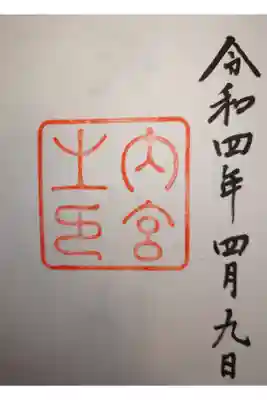 令和四年 四月九日
内宮
之印